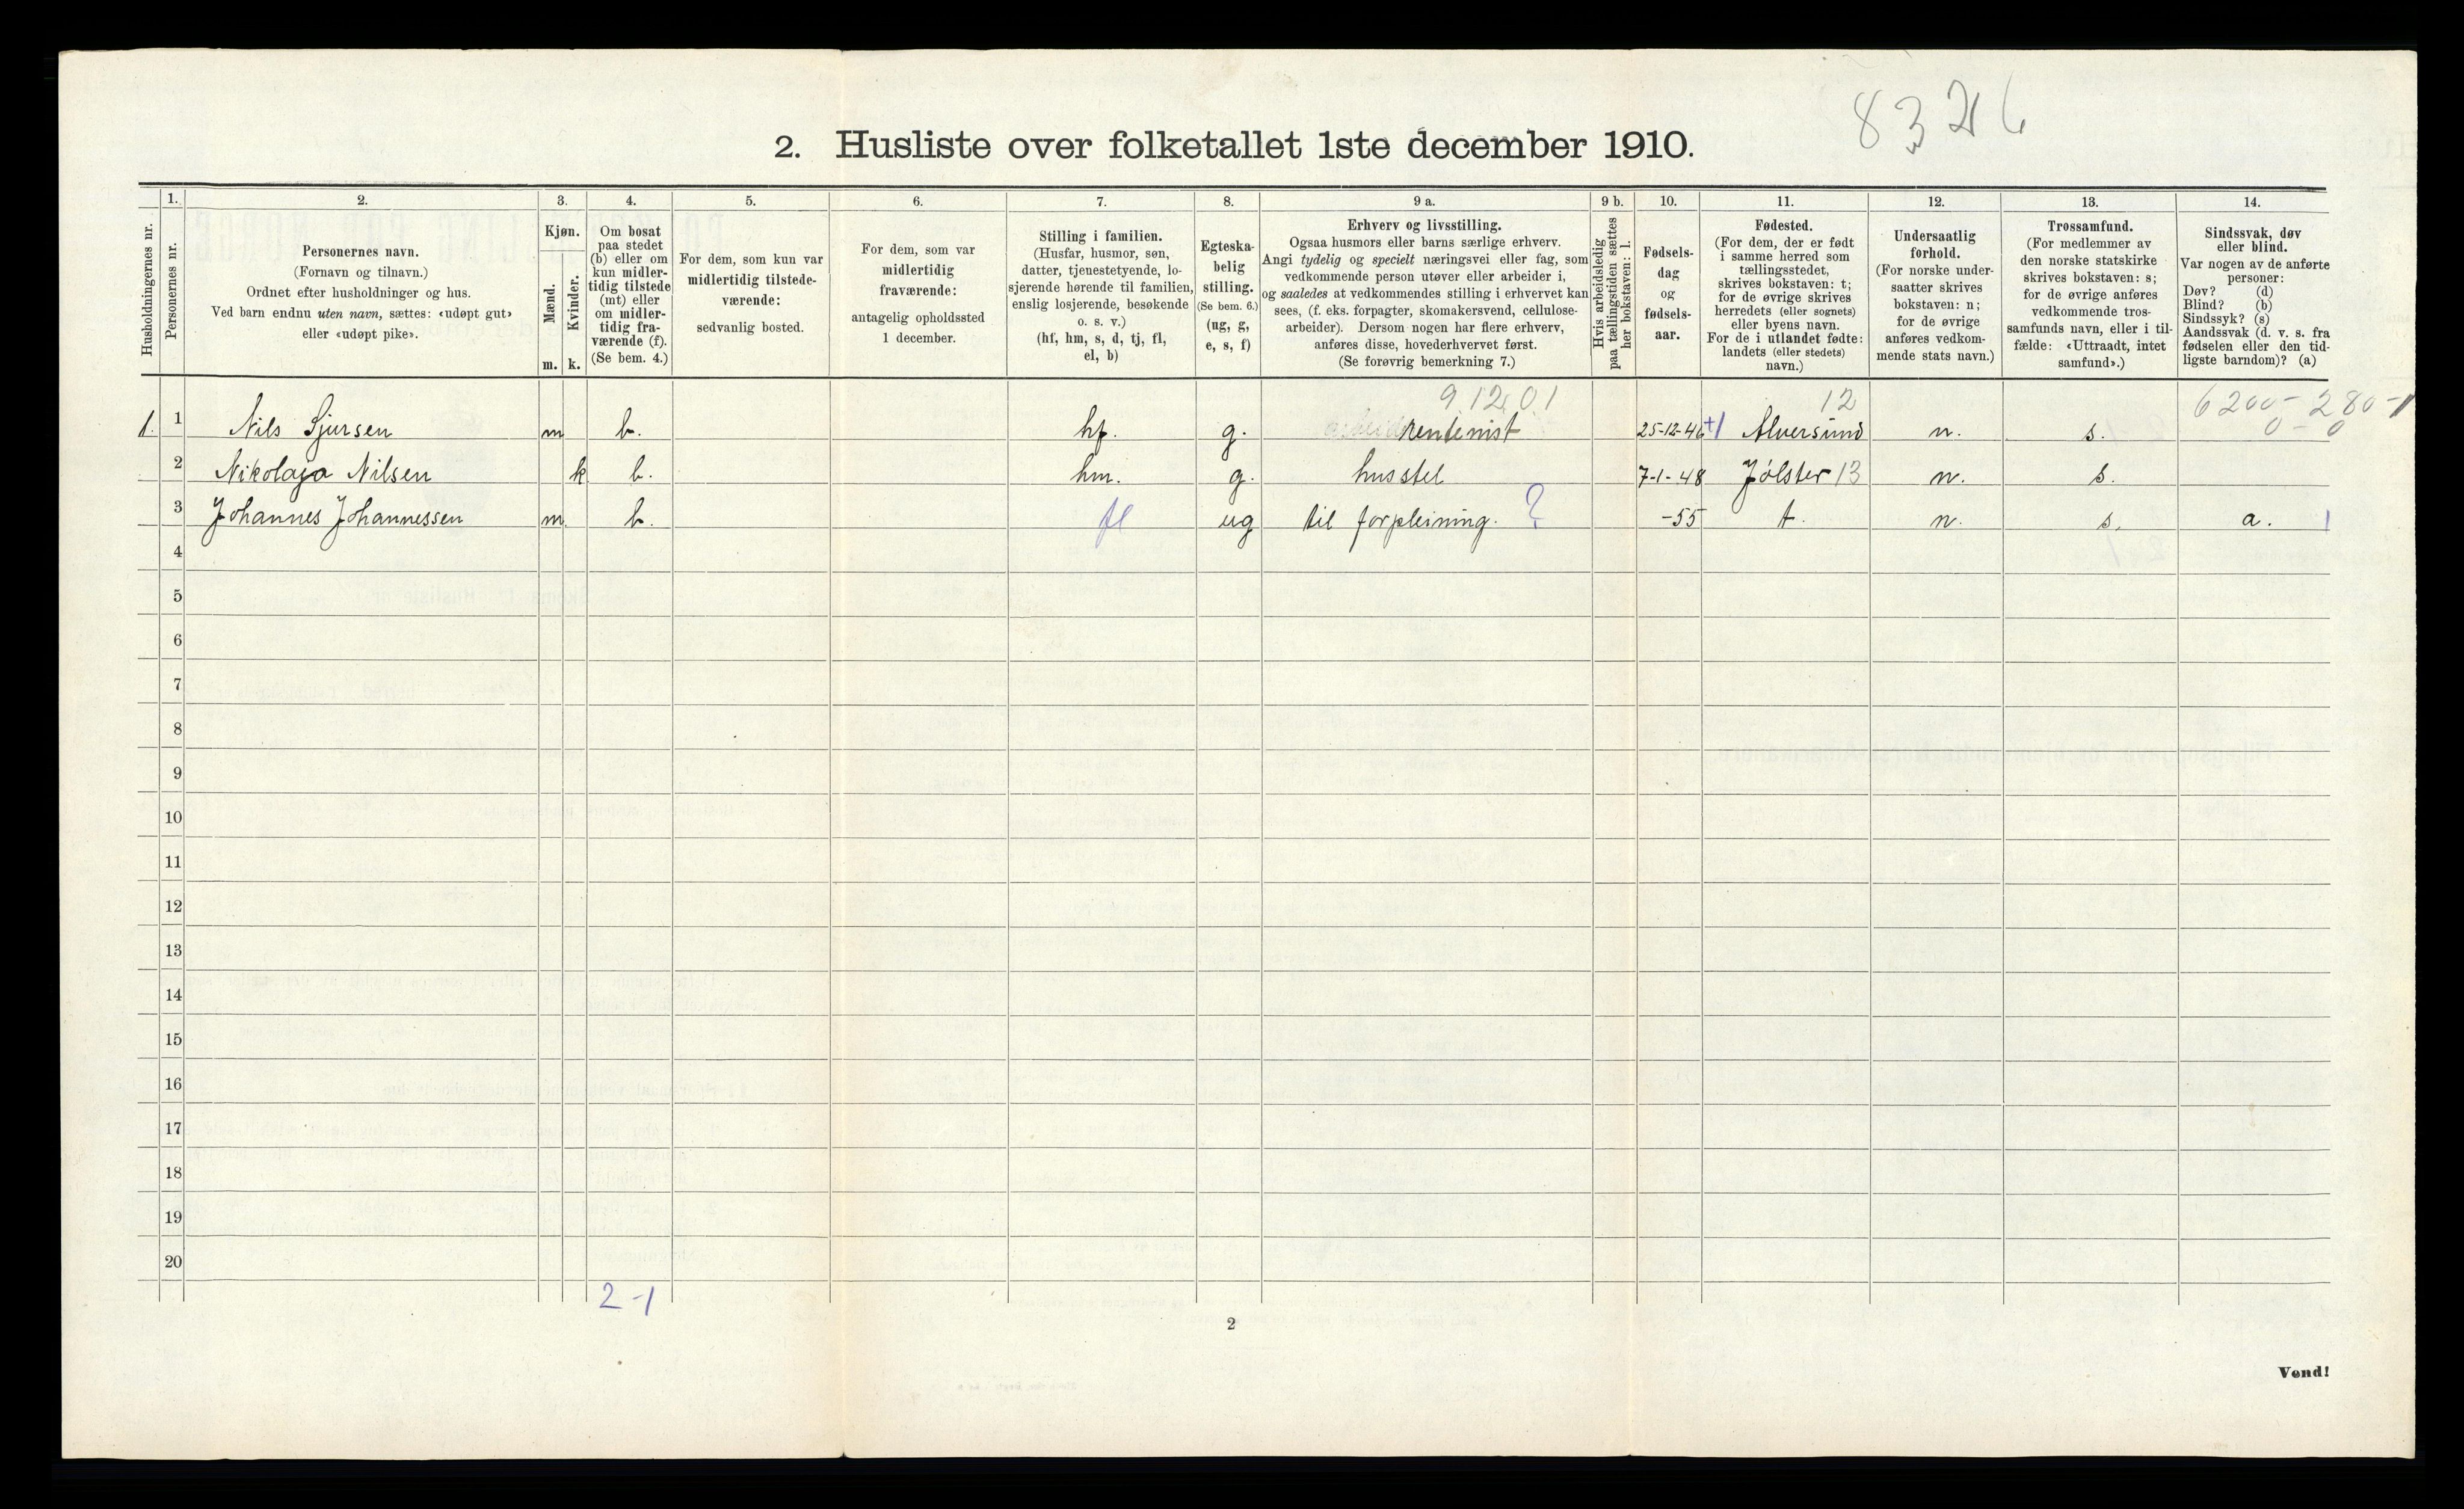 8326
2. Husliste over folketallet 1ste december 1910.
Husholdningernes nr.
1.
Personernes nr.
2.
Personernes navn.
(Fornavn og tilnavn.)
Ordnet efter husholdninger og hus.
Ved barn endnu uten navn, sættes: «udøpt gut»
eller «udøpt pike».
3.
Kjøn.
Mænd.
Kvinder.
m. k.
4.
Om bosat
paa stedet
(b) eller om
kun midler-
tidig tilstede
(mt) eller
om midler-
tidig fra-
værende (f).
(Se bem. 4.)
5.
For dem, som kun var
midlertidig tilstede-
værende:
sedvanlig bosted.
6.
For dem, som var
midlertidig
fraværende:
antagelig opholdssted
1 december.
7.
Stilling i familien.
(Husfar, husmor, søn,
datter, tjenestetyende, lo-
sjerende hørende til familien,
enslig losjerende, besøkende
o. s. v.)
(hf, hm, s, d, tj, fl,
el, b)
8.
Egteska-
belig
stilling.
(Se bem. 6.)
(ug, g,
e, s, f)
9 a.
Erhverv og livsstilling.
Ogsaa husmors eller barns særlige erhverv.
Angi tydelig og specielt næringsvei eller fag, som
vedkommende person utøver eller arbeider i,
og saaledes at vedkommendes stilling i erhvervet kan
sees, (f. eks. forpagter, skomakersvend, cellulose-
arbeider). Dersom nogen har flere erhverv,
anføres disse, hovederhvervet først.
(Se forøvrig bemerkning 7.)
9 b.
Hvis arbeidsledig
paa tællingstiden sættes
her bokstaven: l.
10.
Fødsels-
dag
og
fødsels-
aar.
11.
Fødested.
(For dem, der er født
i samme herred som
tællingsstedet,
skrives bokstaven: t;
for de øvrige skrives
herredets (eller sognets)
eller byens navn.
For de i utlandet fødte:
landets (eller stedets)
navn.)
12.
Undersaatlig
forhold.
(For norske under-
saatter skrives
bokstaven: n;
for de øvrige
anføres vedkom-
mende stats navn.)
13.
Trossamfund.
(For medlemmer av
den norske statskirke
skrives bokstaven: s;
for de øvrige anføres
vedkommende tros-
samfunds navn, eller i til-
fælde: «Uttraadt, intet
samfund».)
14.
Sindssvak, døv
eller blind.
Var nogen av de anførte
personer:
Døv? (d)
Blind? (b)
Sindssyk? (s)
Aandssvak (d. v. s. fra
fødselen eller den tid-
ligste barndom)? (a)
9.12.01 12 6200-280-1
0-0
1. 1 Nils Sjursen m b. hf. g. rentenist 25-12-46 +1 Alversund n. s.
2 Nikolaja Nilsen k b. hm. g. husstel 7-1-48 Jölster 13 n. s.
3 Johannes Johannessen m b. fl ug til forpleining. ? -55 t. n. s. a. 1
4
5
6
7
8
9
10
11
12
13
14
15
16
17
18
19
20
2-1
2
Vend!